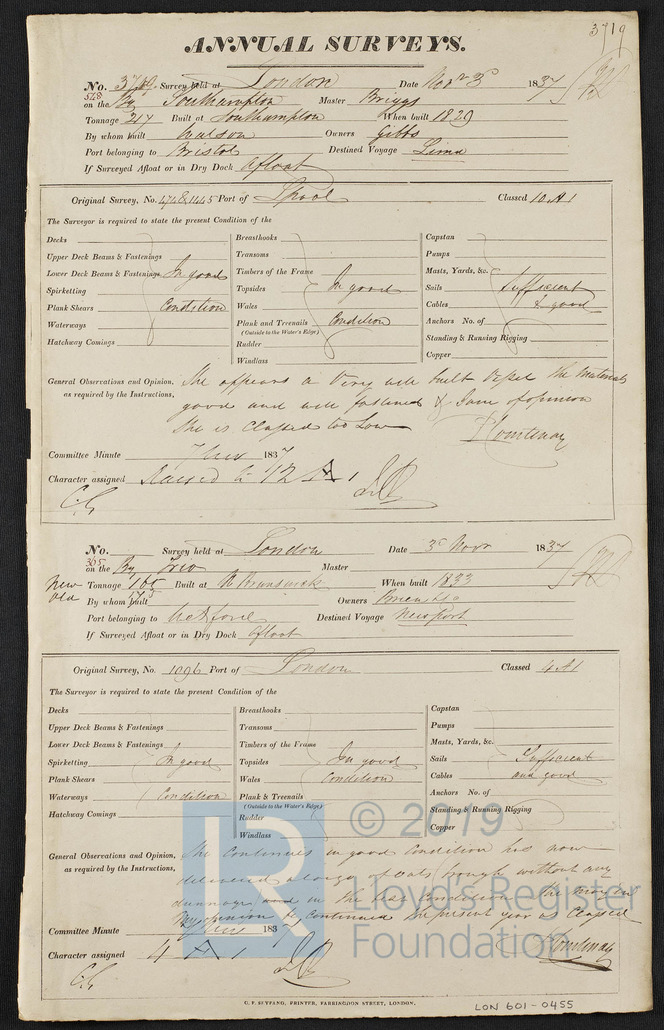 3719
ANNUAL SURVEYS.
No. 3719. Survey held at London Date Novr 3d 1837
on the Bg Southampton Master Briggs
Tonnage 247 Built at Southampton When built 1829
By whom built Watson Owners Gibbs
Port belonging to Bristol Destined Voyage Lima
If Surveyed Afloat or in Dry Dock Afloat
Original Survey, No. Port of Lpool Classed 10 A1
The Surveyor is required to state the present Condition of the
Decks
Upper Deck Beams & Fastenings
Lower Deck Beams & Fastenings In good
Spirketting
Plank Shears Condition
Waterways
Hatchway Comings
Breasthooks
Transoms
Timbers of the Frame
Topsides In good
Wales
Plank and Treenails Condition
(Outside to the Water's Edge)
Rudder
Windlass
Capstan
Pumps
Masts, Yards, &c.
Sails Sufficient
Cables & good
Anchors No. of
Standing & Running Rigging
Copper
General Observations and Opinion, She appears a very well built Vessel the materials
as required by the Instructions, good and well fastened & I am of opinion
She is Classed too Low
Courtenay
Committee Minute 7 Novr 1837
Character assigned Raised to 12 A 1
No. Survey held at London Date 3d Novr 1837
365
on the Bg Trio Master
New Tonnage 165 Built at N Brunswick When built 1833
Old 175
By whom built Owners
Port belonging to Destined Voyage Newport
If Surveyed Afloat or in Dry Dock Afloat
Original Survey, No. 1096 Port of London Classed 4 A1
The Surveyor is required to state the present Condition of the
Decks
Upper Deck Beams & Fastenings
Lower Deck Beams & Fastenings
Spirketting In good
Plank Shears
Waterways Condition
Hatchway Comings
Breasthooks
Transoms
Timbers of the Frame
Topsides In good
Wales Condition
Plank & Treenails
(Outside to the Water's Edge)
Rudder
Windlass
Capstan
Pumps
Masts, Yards, &c.
Sails Sufficient
Cables and good
Anchors No. of
Standing & Running Rigging
Copper
© 2019
Lloyd's Register
Foundation
LR
General Observations and Opinion, She Continues in good Condition has now
as required by the Instructions, delivered a Cargo of Oats through without any
dunnage and in the best Condition
My opinion be Continued the present year as Classed
Courtenay
Committee Minute 7 Novr 1837
Character assigned 4 A 1
C. F. SEYFANG, PRINTER, FARRINGDON STREET, LONDON.
LON 601-0455